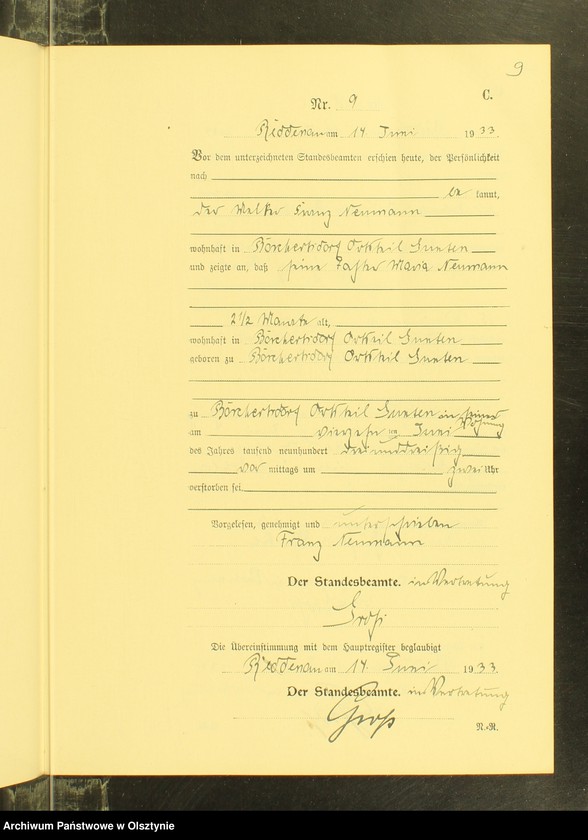 9
C.
Nr. 9
am 14 Juni 1933.
Vor dem unterzeichneten Standesbeamten erschien heute, der Persönlichkeit
nach
be kannt,
der Melker Franz Neumann
wohnhaft in Borchertsdorf Ortsteil
und zeigte an, daß seine Tochter Maria Neumann
2 1/2 Monate alt,
wohnhaft in Borchertsdorf Ortsteil
geboren zu Borchertsdorf Ortsteil
zu Borchertsdorf Ortsteil in seiner
Wohnung
am vierzehnten Juni
des Jahres tausend neunhundert dreiunddreißig
vor mittags um zwei Uhr
verstorben sei.
Vorgelesen, genehmigt und unterschrieben
Franz Neumann
Der Standesbeamte. in Vertretung
Groß
Die Übereinstimmung mit dem Hauptregister beglaubigt
am 14. Juni 1933.
Der Standesbeamte. in Vertretung
Groß
N.-R.
Archiwum Państwowe w Olsztynie